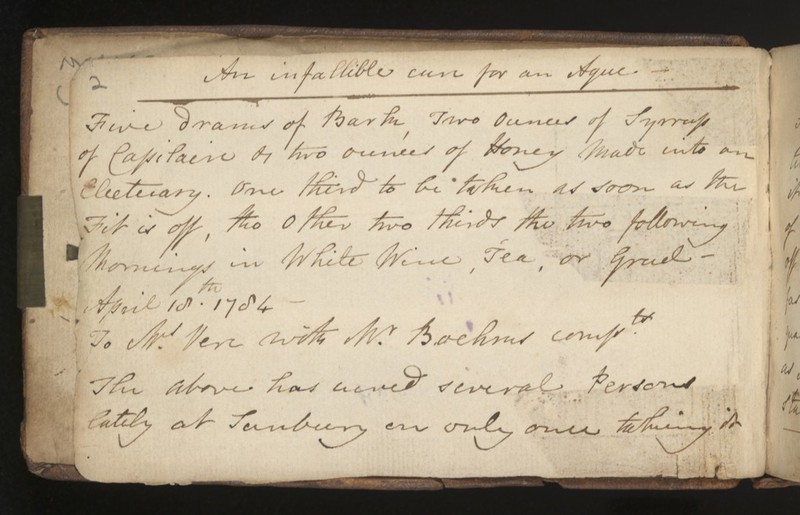 2
An infallible cure for an Ague —
Five drams of Bark, Two Ounces of Syrrup
of Capilaire & two ounces of Honey Made into an
Electuary. One third to be taken as soon as the
Fit is off, the Other two thirds the two following
Mornings in White Wine, Tea, or Gruel —
April 18.th 1784 —
To Mrs Vere with Mr Boehms compts.
The above has cured several Persons
lately at Sunbury on only once taking it